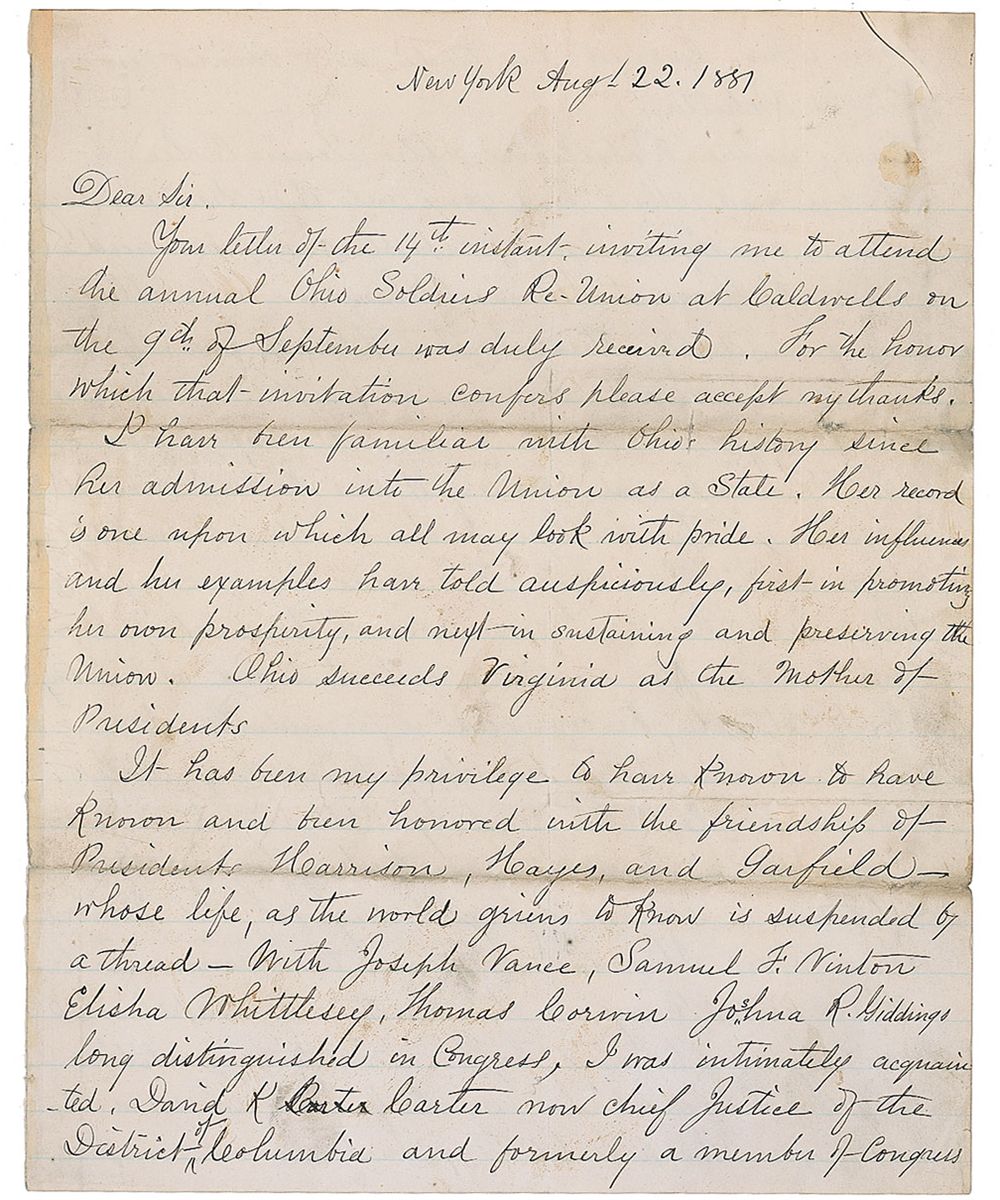 New York Augt 22. 1881
Dear Sir.
Your letter of the 14th instant. inviting me to attend
the annual Ohio Soldiers Re-Union at Caldwells on
the 9th of September was duly received. For the honor
which that invitation confers please accept my thanks.
I have been familiar with Ohio's history since
her admission into the Union as a State. Her record
is one upon which all may look with pride. Her influence
and her examples have told auspiciously, first in promoting
her own prosperity, and next in sustaining and preserving the
Union. Ohio succeeds Virginia as the Mother of
Presidents
It has been my privilege to have known to have
known and been honored with the friendship of
Presidents Harrison, Hayes, and Garfield —
whose life, as the world grieves to know is suspended by
a thread — With Joseph Vance, Samuel F. Vinton
Elisha Whittlesey, Thomas Corwin Joshua R. Giddings
long distinguished in Congress, I was intimately acquain
-ted. David K Carter Carter now chief Justice of the
District of Columbia and formerly a member of Congress